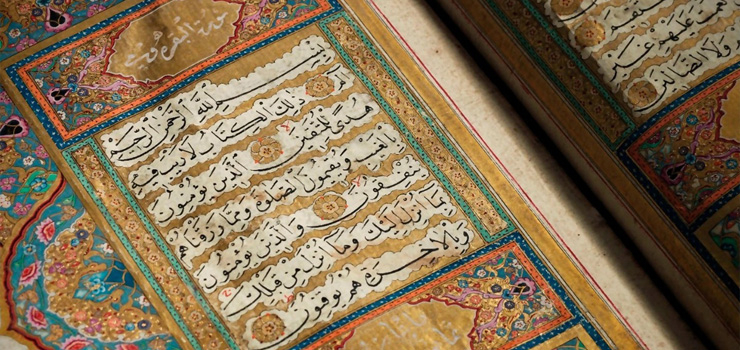 عليهم غير
ولا الضالين
سورة البقرة
بسم الله الرحمن الرحيم
الم ذلك الكتاب لا ريب فيه
هدى للمتقين الذين يؤمنون
بالغيب ويقيمون الصلاة ومما رزقناهم
ينفقون والذين يؤمنون
بما انزل اليك وما انزل من قبلك
وبالاخرة هم يوقنون